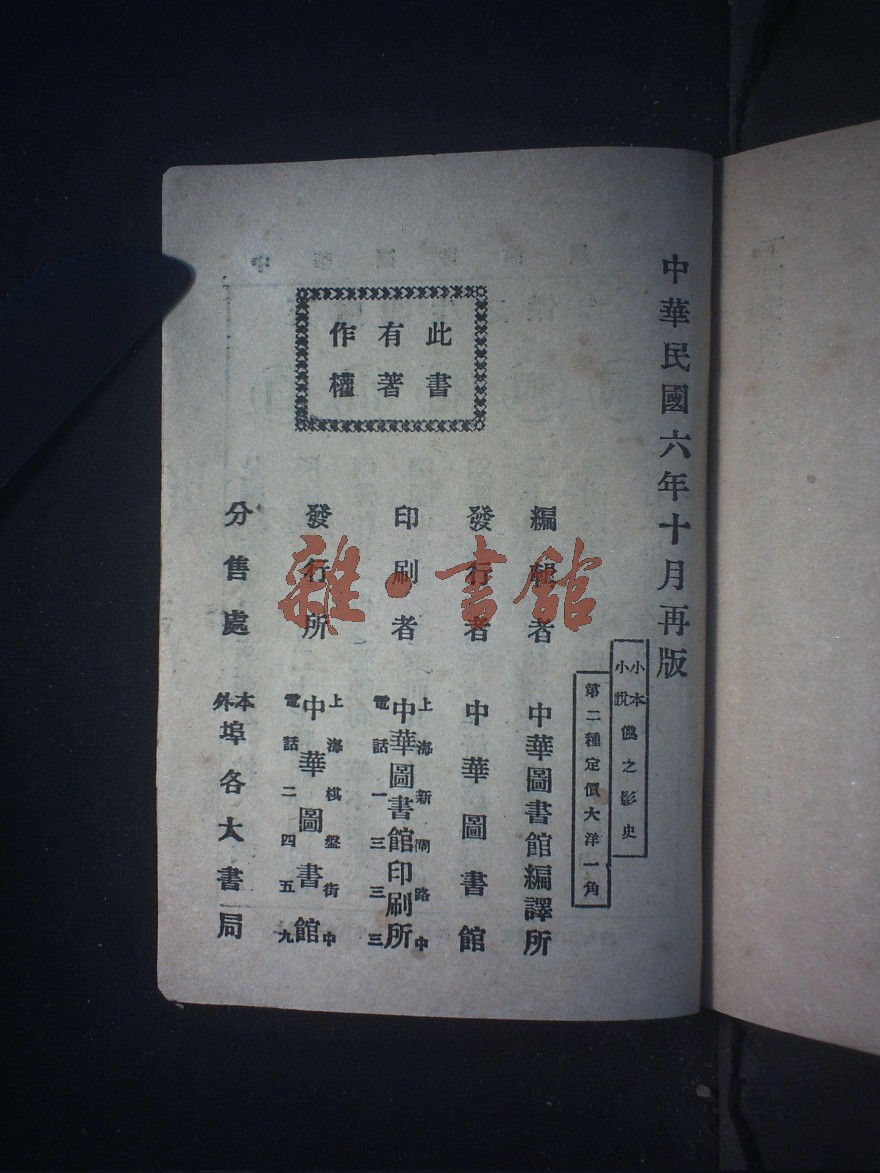 中華民國六年十月再版
小本小說 儂之影史
第二種定價大洋一角
編輯者 中華圖書館編譯所
發行者 中華圖書館
印刷者 上海新閘路中 中華圖書館印刷所 電話一三三三
發行所 上海棋盤街中 中華圖書館 電話二四五九
分售處 本外埠各大書局
此書
有著
作權
雜·書館